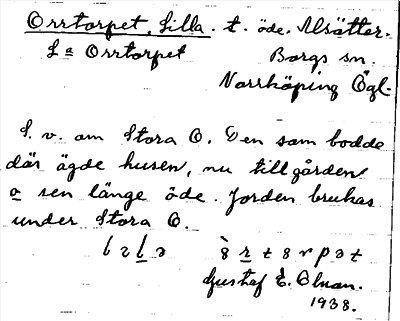 Orrtorpet, Lilla. t. öde. Alsätter.
La Orrtorpet Borgs sn.
Norrköping Ögl.
S. v. om Stora O. Den som bodde
där ägde husen, nu till gården
o sen länge öde. Jorden brukas
under Stora O.
Gustaf E. Olsson.
1938.